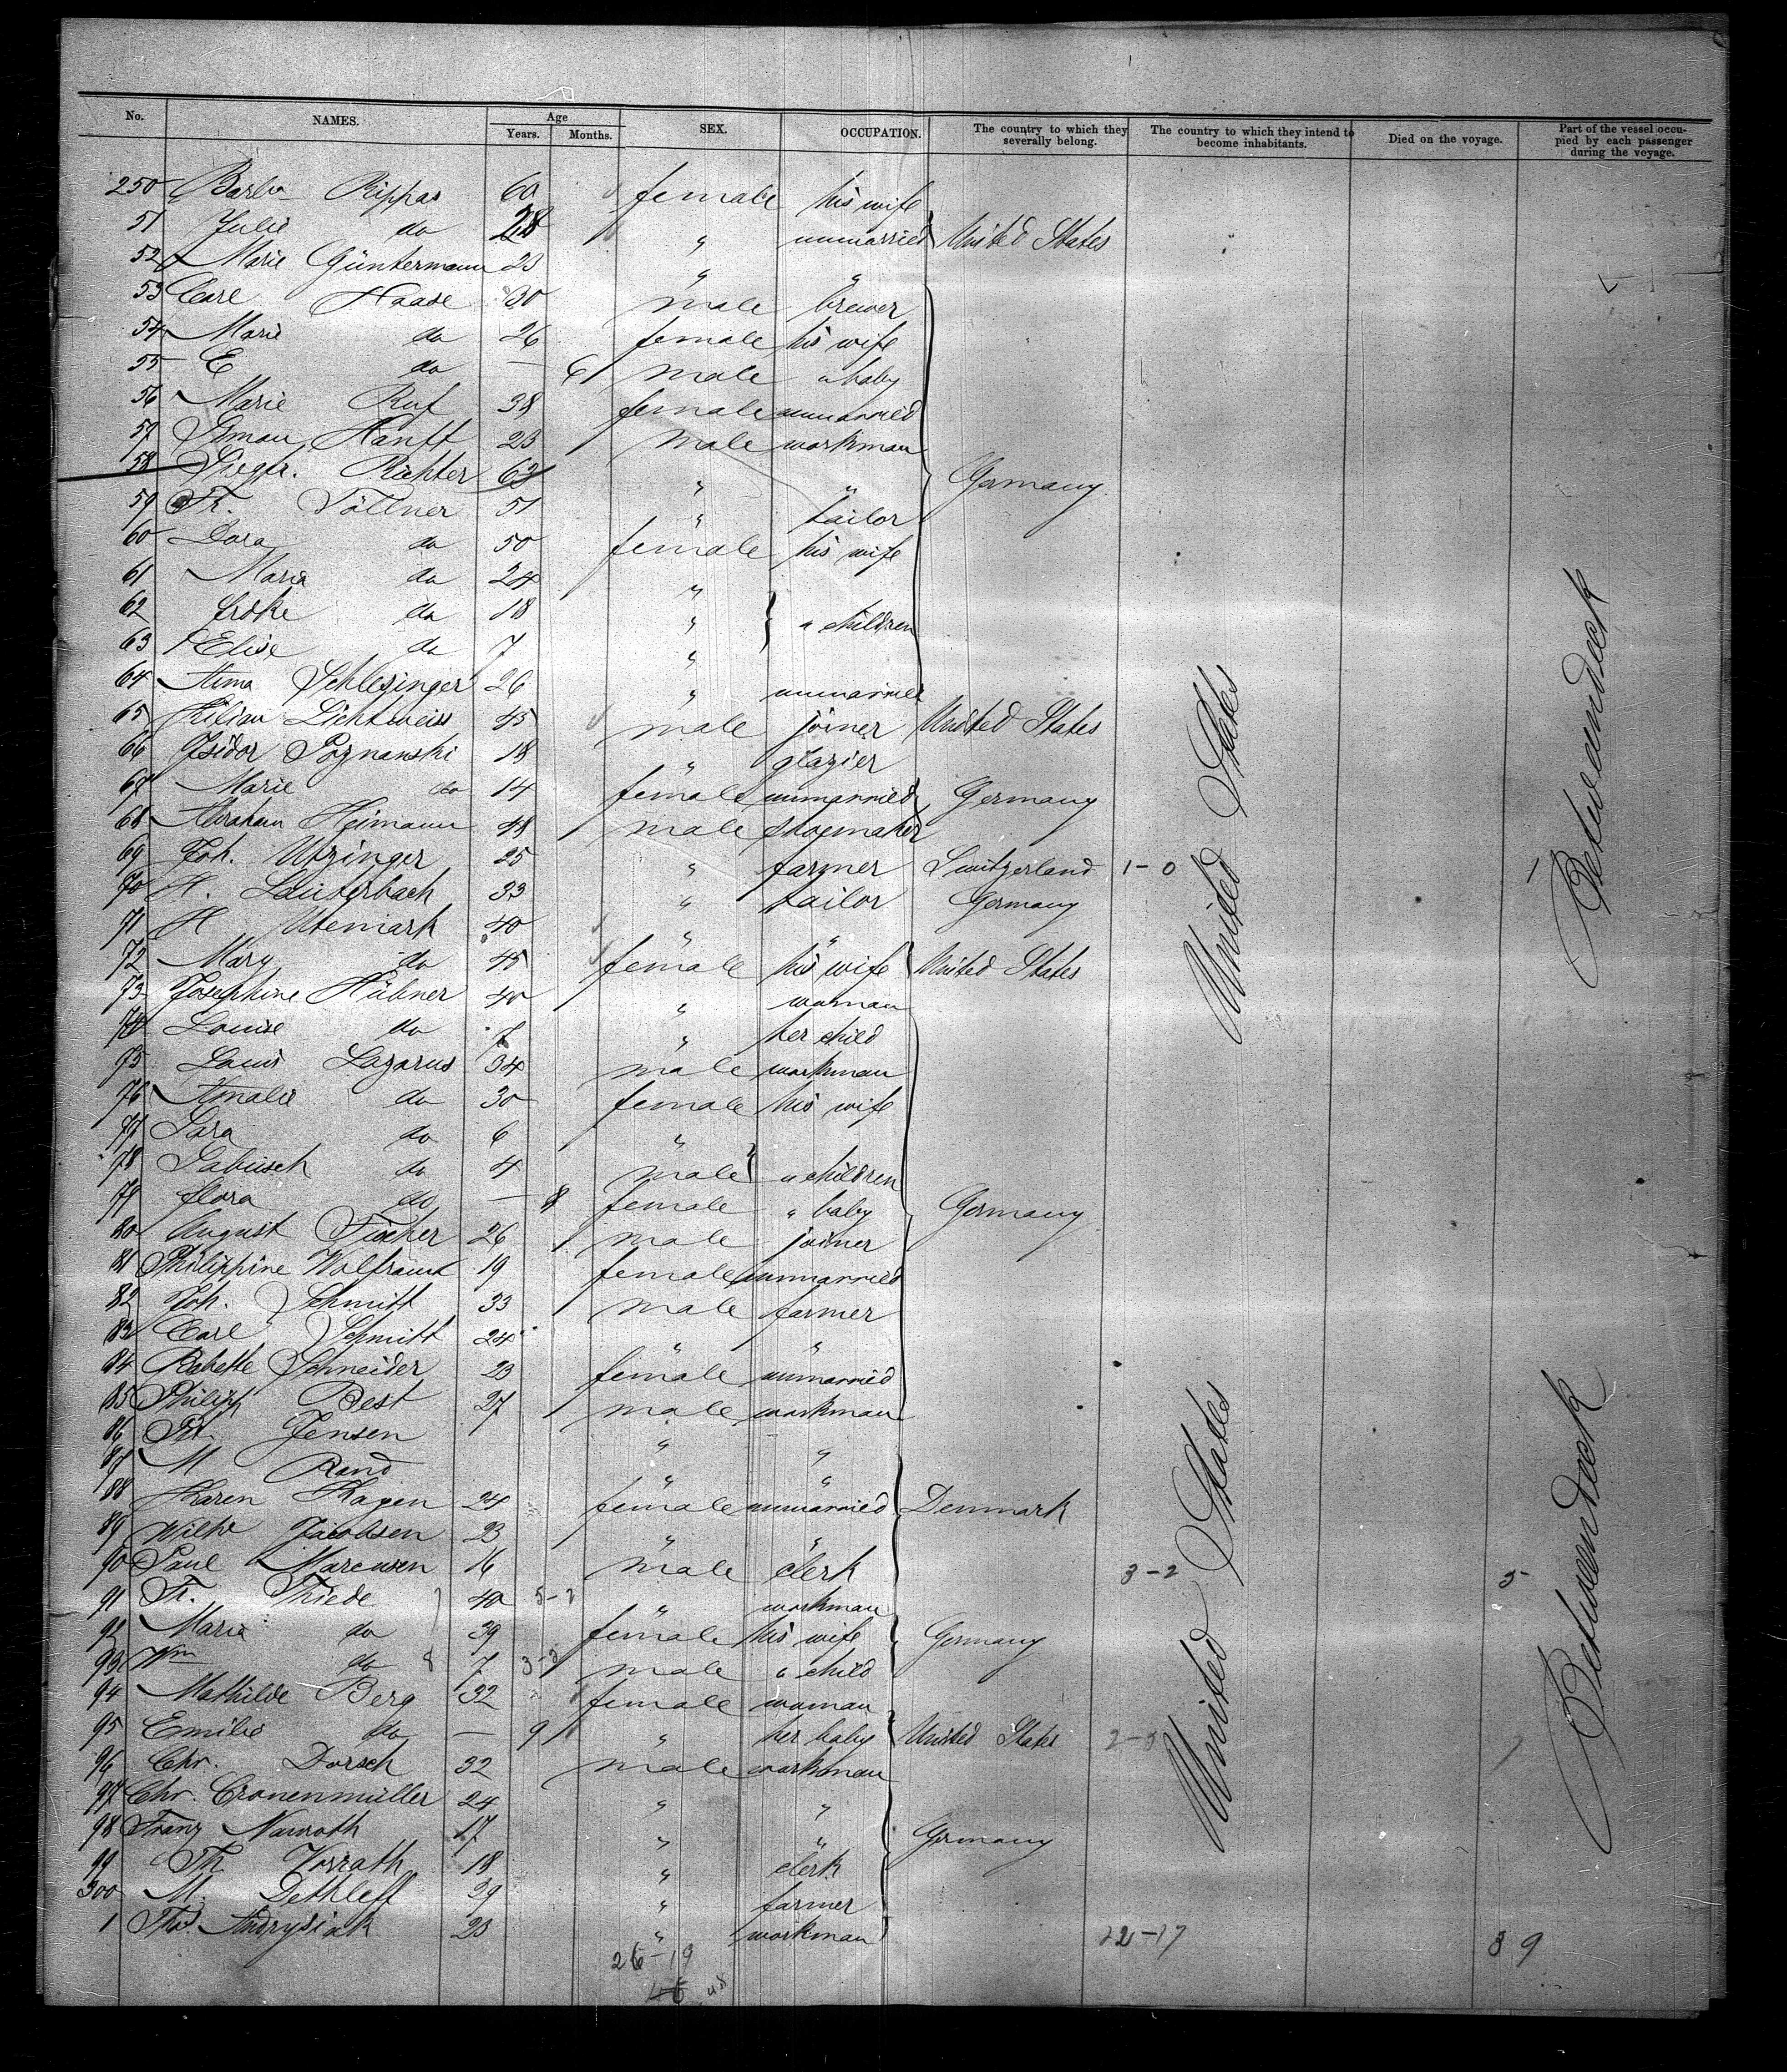 No. NAMES. Age Years. Months. SEX. OCCUPATION. The country to which they severally belong. The country to which they intend to become inhabitants. Died on the voyage. Part of the vessel occupied by each passenger during the voyage.
250 Barb. Rippas 60 female his wife
51 Julie do 28 " unmarried United States
52 Marie Güntermann 23 " "
53 Carl Haase 30 male brewer
54 Marie do 26 female his wife
55 E do — 6 male " baby
56 Marie Ruf 38 female unmarried
57 Hanff 23 male workman
58 Siegfr. Richter 63 " " Germany
59 Fr. Töllner 51 " tailor
60 Dora do 50 female his wife
61 Maria do 24 "
62 do 18 " " children
63 Elise do 7 "
64 Anna Schlesinger 26 " unmarried
65 Kilian Lichtweiss 45 male joiner United States
66 Isidor Poznanski 18 " glazier
67 Marie do 14 female unmarried Germany
68 Abraham Heimann 48 male shoemaker
69 Joh. Utzinger 25 " farmer Switzerland 1-0 1
70 H. Lauterbach 33 " tailor Germany
71 H Utemark 40 " "
72 Mary do 45 female his wife United States
73 Josephine Hübner 40 " woman
74 Louise do 7 " her child
75 Louis Lazarus 34 male workman
76 Amalie do 30 female his wife
77 Sara do 6 "
78 do 4 male " children
79 flora do — 8 female " baby Germany
80 August Fischer 26 male joiner
81 Philippine 19 female unmarried
82 Joh. Schmitt 33 male farmer
83 Carl Schmitt 24 " "
84 Babette Schneider 23 female unmarried
85 Philipp Best 27 male workman
86 Jensen " "
87 M Rand " "
88 Karen Hagen 24 female unmarried Denmark
89 Wilhe Jacobsen 23 " "
90 Paul Marcusen 16 male clerk 3-2 5
91 Fr. Thiede 40 " workman
92 Maria do 39 female his wife Germany
93 Wm do 7 male " child
94 Mathilde Berg 32 female woman
95 Emilie do — 9 " her baby United States
96 Chr. Dorsch 32 male workman
97 Chr. Cronenmüller 24 " "
98 Franz Nawroth 17 " " Germany
99 Th. Vorrath 18 " clerk
300 M. Dethleff 39 " farmer
1 Ths. Andrysiak 23 " workman 22-17 39
26-19
45
United States
United States
Betweendeck
Betweendeck